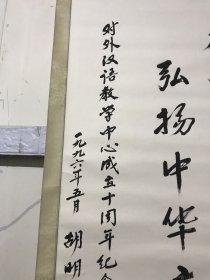 弘扬中华
对外汉语教学中心成立十周年纪念
一九九六年五月 胡明